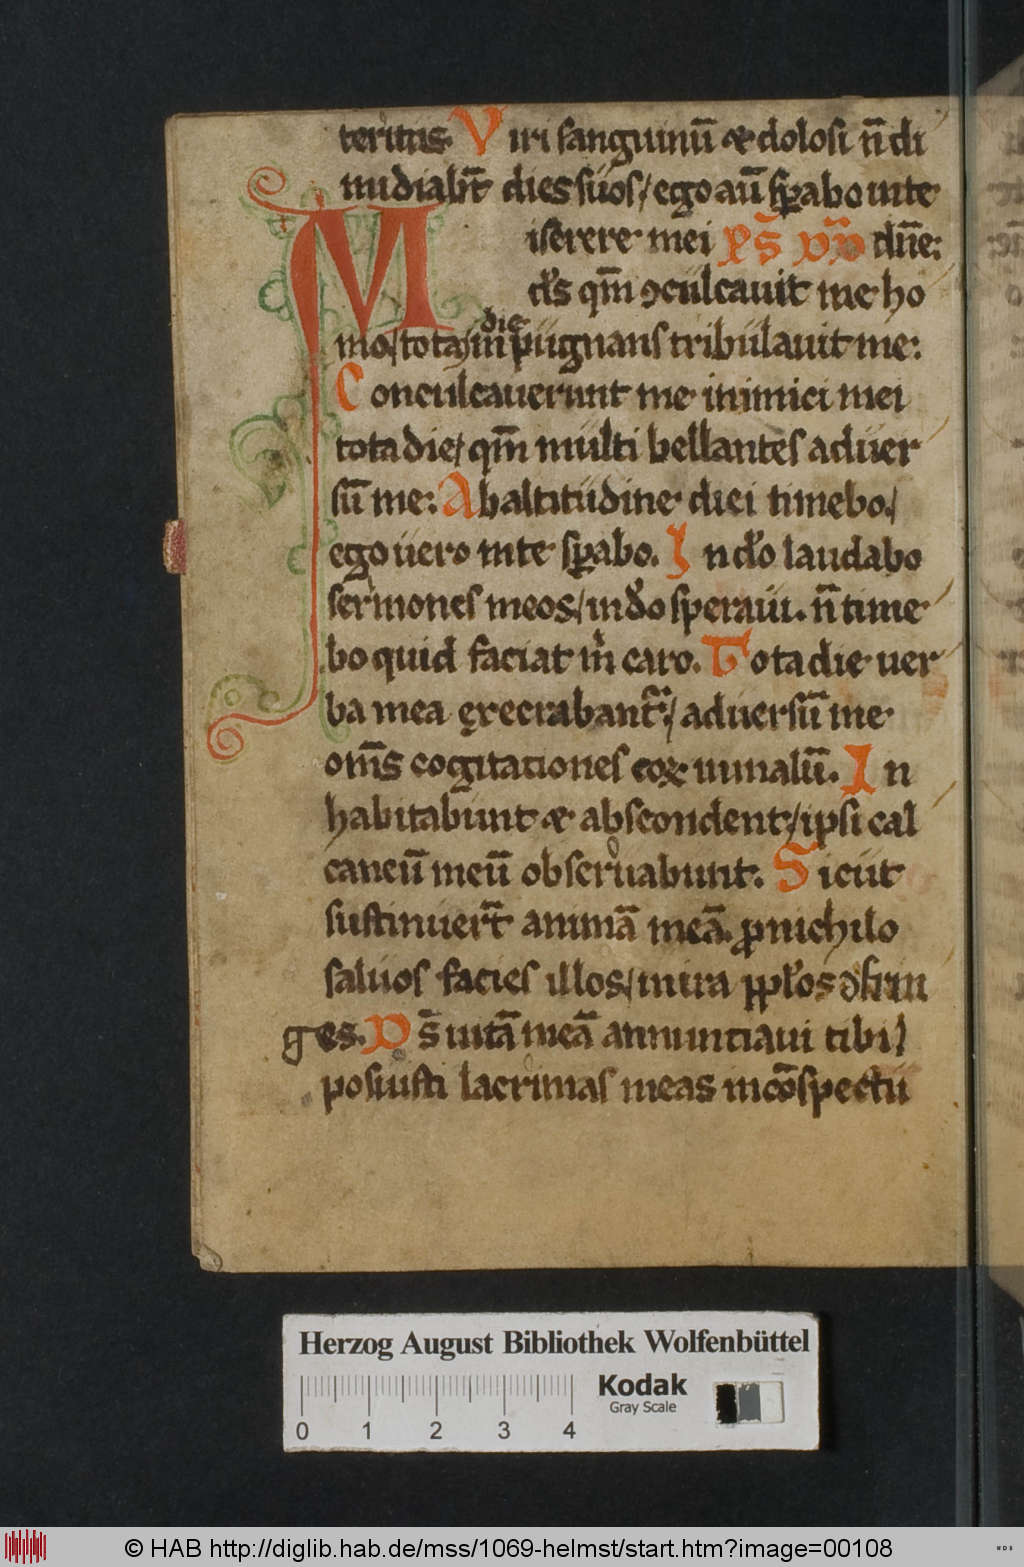 teritus. Viri sanguinū & dolosi n̄ di
midiabt̄ dies suos / ego aū sꝑabo inte
Miserere mei p̄s d̄d dn̄e:
ds̄ qm̄ ꝯculcauit me ho
mo / tota die īpugnans tribulauit me:
Conculcauerunt me inimici mei
tota die / qm̄ multi bellantes aduer
sū me: Abaltitudine diei timebo /
ego uero inte sꝑabo. In do̅ laudabo
sermones meos / indo̅ speraui. n̄ time
bo quid faciat m̅ caro. Tota die uer
ba mea execrabant᷑ / aduersū me
om̄s cogitationes eoꝝ inmalū. In
habitabunt & abscondent / ipsi cal
caneū meū obseruabunt. Sicut
sustinuert̄ animā meā. ꝓnichilo
saluos facies illos / inira pp̄los ɔfrin
ges. Ds̄ uitā meā annuntiaui tibi /
posuisti lacrimas meas incōspectu
Herzog August Bibliothek Wolfenbüttel
Kodak
Gray Scale
0 1 2 3 4
© HAB http://diglib.hab.de/mss/1069-helmst/start.htm?image=00108